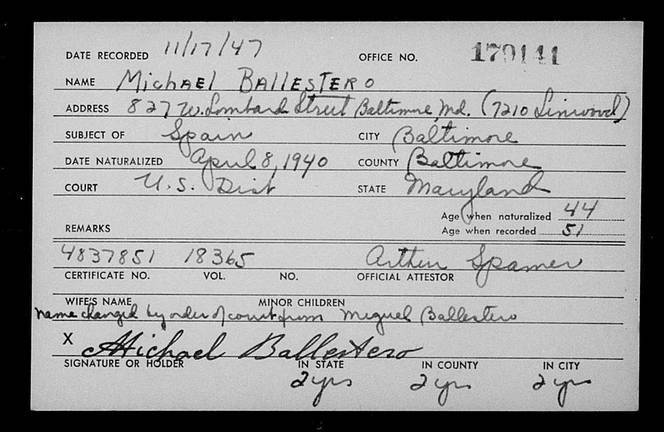 DATE RECORDED 11/17/47 OFFICE NO. 179141
NAME Michael BALLESTERO
ADDRESS 827 W. Lombard Street Baltimore, Md. (7210 Linwood)
SUBJECT OF Spain CITY Baltimore
DATE NATURALIZED April 8, 1940 COUNTY Baltimore
COURT U.S. Dist STATE Maryland
Age when naturalized 44
REMARKS Age when recorded 51
4837851 18365 Arthur Spamer
CERTIFICATE NO. VOL. NO. OFFICIAL ATTESTOR
WIFE'S NAME MINOR CHILDREN
Name changed by order of court from Miguel Ballestero
X Michael Ballestero
SIGNATURE OR HOLDER IN STATE IN COUNTY IN CITY
2 yrs 2 yrs 2 yrs